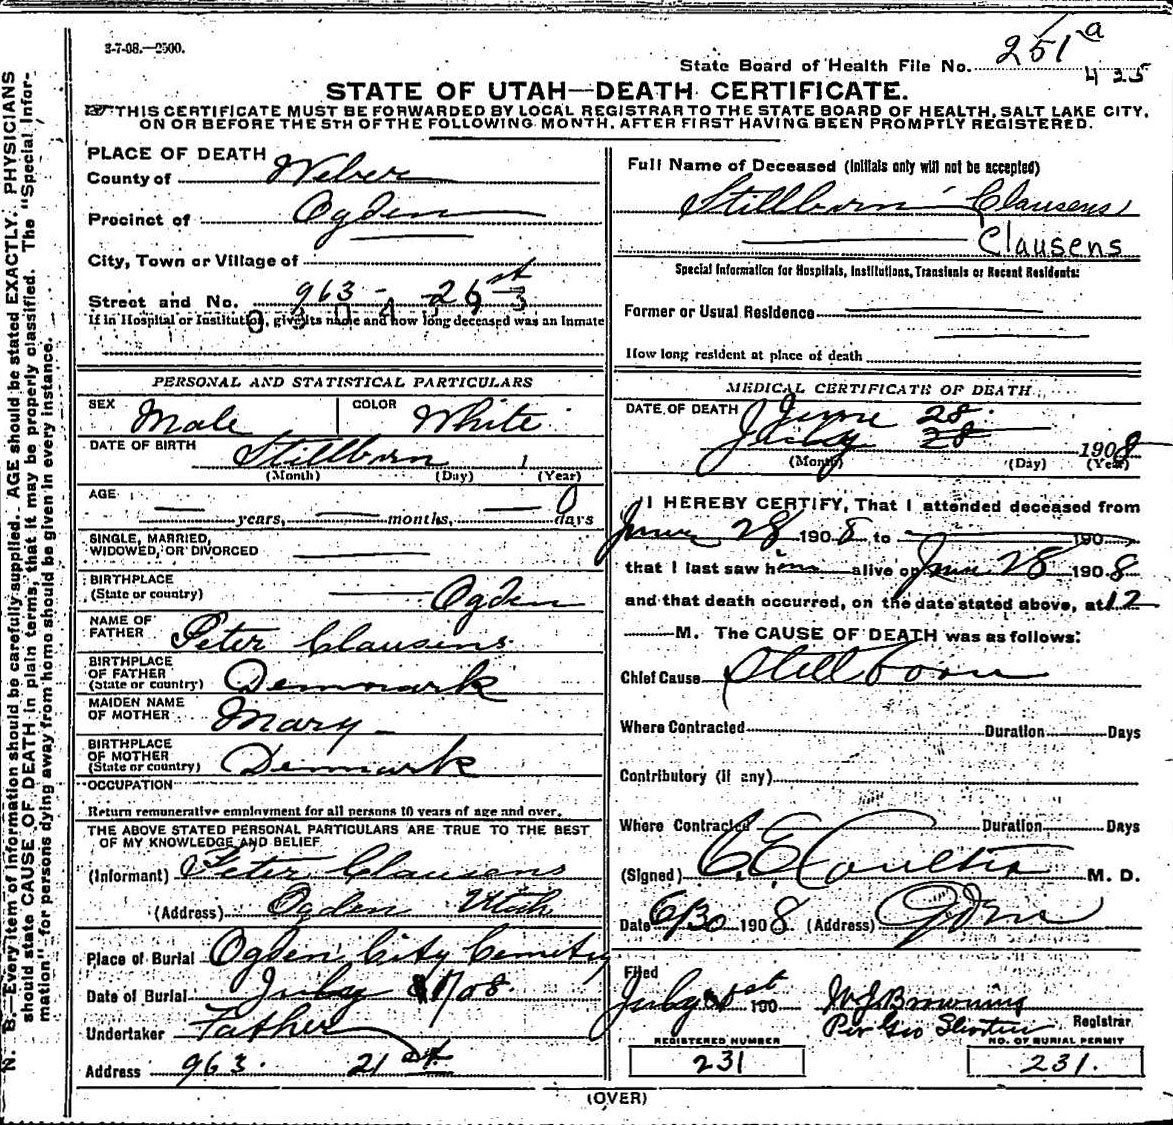 3-7-08.—2500.
State Board of Health File No. 251 a
435
STATE OF UTAH—DEATH CERTIFICATE.
THIS CERTIFICATE MUST BE FORWARDED BY LOCAL REGISTRAR TO THE STATE BOARD OF HEALTH, SALT LAKE CITY,
ON OR BEFORE THE 5TH OF THE FOLLOWING MONTH, AFTER FIRST HAVING BEEN PROMPTLY REGISTERED.
N. B.—Every item of information should be carefully supplied. AGE should be stated EXACTLY. PHYSICIANS
should state CAUSE OF DEATH in plain terms, that it may be properly classified. The "Special Infor-
mation" for persons dying away from home should be given in every instance.
PLACE OF DEATH
County of Weber
Precinct of Ogden
City, Town or Village of
Street and No. 963 - st
If in Hospital or Institution, give its name and how long deceased was an Inmate
PERSONAL AND STATISTICAL PARTICULARS
SEX Male COLOR White
DATE OF BIRTH Stillborn 1
(Month) (Day) (Year)
AGE years, months, 0 days
SINGLE, MARRIED,
WIDOWED, OR DIVORCED
BIRTHPLACE
(State or country) Ogden
NAME OF
FATHER Peter Clausens
BIRTHPLACE
OF FATHER
(State or country) Denmark
MAIDEN NAME
OF MOTHER Mary
BIRTHPLACE
OF MOTHER
(State or country) Denmark
OCCUPATION
Return remunerative employment for all persons 10 years of age and over.
THE ABOVE STATED PERSONAL PARTICULARS ARE TRUE TO THE BEST
OF MY KNOWLEDGE AND BELIEF
(Informant) Peter Clausens
(Address) Ogden Utah
Place of Burial Ogden City Cemetry
Date of Burial July 1/08
Undertaker Father
Address 963. 21 st.
Full Name of Deceased (Initials only will not be accepted)
Stillborn Clausens
Clausens
Special Information for Hospitals, Institutions, Transients or Recent Residents:
Former or Usual Residence
How long resident at place of death
MEDICAL CERTIFICATE OF DEATH
DATE OF DEATH June 28.
July 28 1908
(Month) (Day) (Year)
I HEREBY CERTIFY, That I attended deceased from
June 28 1908 to 190
that I last saw him alive on June 28 1908
and that death occurred, on the date stated above, at 12
M. The CAUSE OF DEATH was as follows:
Chief Cause Still born
Where Contracted Duration Days
Contributory (if any)
Where Contracted Duration Days
(Signed) C E Coulter M. D.
Date 6/30 1908. (Address) Ogden
Filed
July 1st 190 W J Browning
Per Geo Registrar
REGISTERED NUMBER
231
NO. OF BURIAL PERMIT
231.
(OVER)